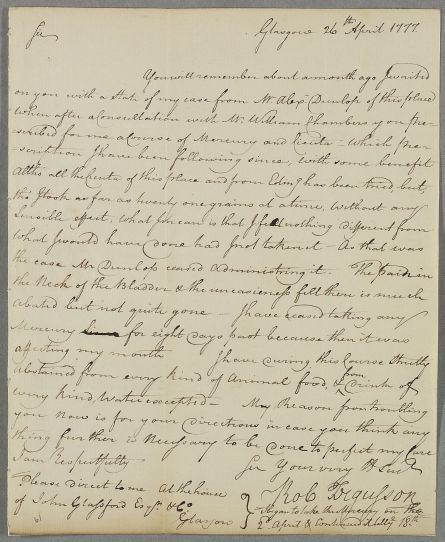 Glasgow 26th April 1777.
Sir
You will remember about a month ago I waited
on you with a State of my case from Mr Alexr Dunlop of this place
when after a Consultation with Mr William Chambers you pre-
scribed for me a Course of Mercury and Cicuta - which pre-
scription I have been following since, with some benefit
Altho all the Cicuta of this place and from Edinr has been tried, but
this I took as far as twenty one grains at a time, without any
Sensible effect, what I mean is that I felt nothing different from
what I would have done had I not taken it - As that was
the case Mr Dunlop ceased administring it. The pain in
the Neck of the Bladder & the uneasieness felt there is much
abated but not quite gone - I have ceased taking any
Mercury for eight days past because then it was
affecting my mouth I have during this Course strictly
abstained from every kind of Animal food, & from Drink of
every kind, Water excepted - My Reason for troubling
you now is for your Directions in case you think any
thing further is necessary to be done to perfect my Cure
I am Respectfully
Sir Your very H Servt
Rob Ferguson
Please direct to me At the house
of John Glassford Esqr. & Co
Glasgow
Began to take the Mercury on the
2d April & Continued it till 18th